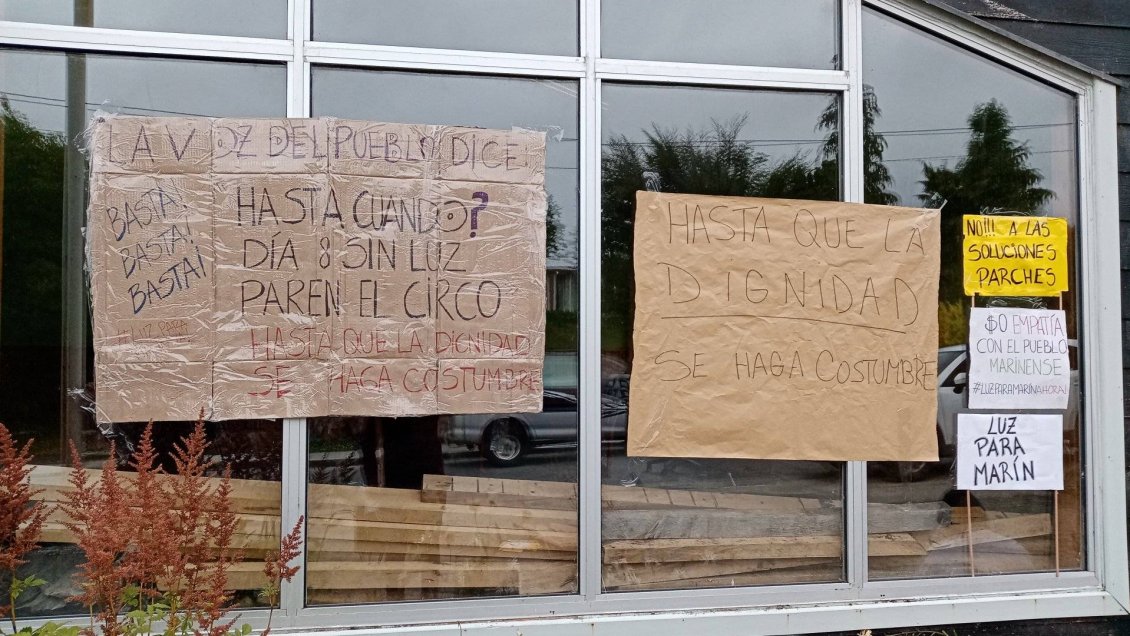 LA VOZ DEL PUEBLO DICE
BASTA!
BASTA!
BASTA!
HASTA CUANDO?
DÍA 8 SIN LUZ
PAREN EL CIRCO
#LUZ PARA
HASTA QUE LA DIGNIDAD
SE HAGA COSTUMBRE
HASTA QUE LA
DIGNIDAD
SE HAGA COSTUMBRE
NO!!! A LAS
SOLUCIONES
PARCHES
$0 EMPATÍA
CON EL PUEBLO
MARINENSE
#LUZPARAMARINAHORA!
LUZ
PARA
MARÍN